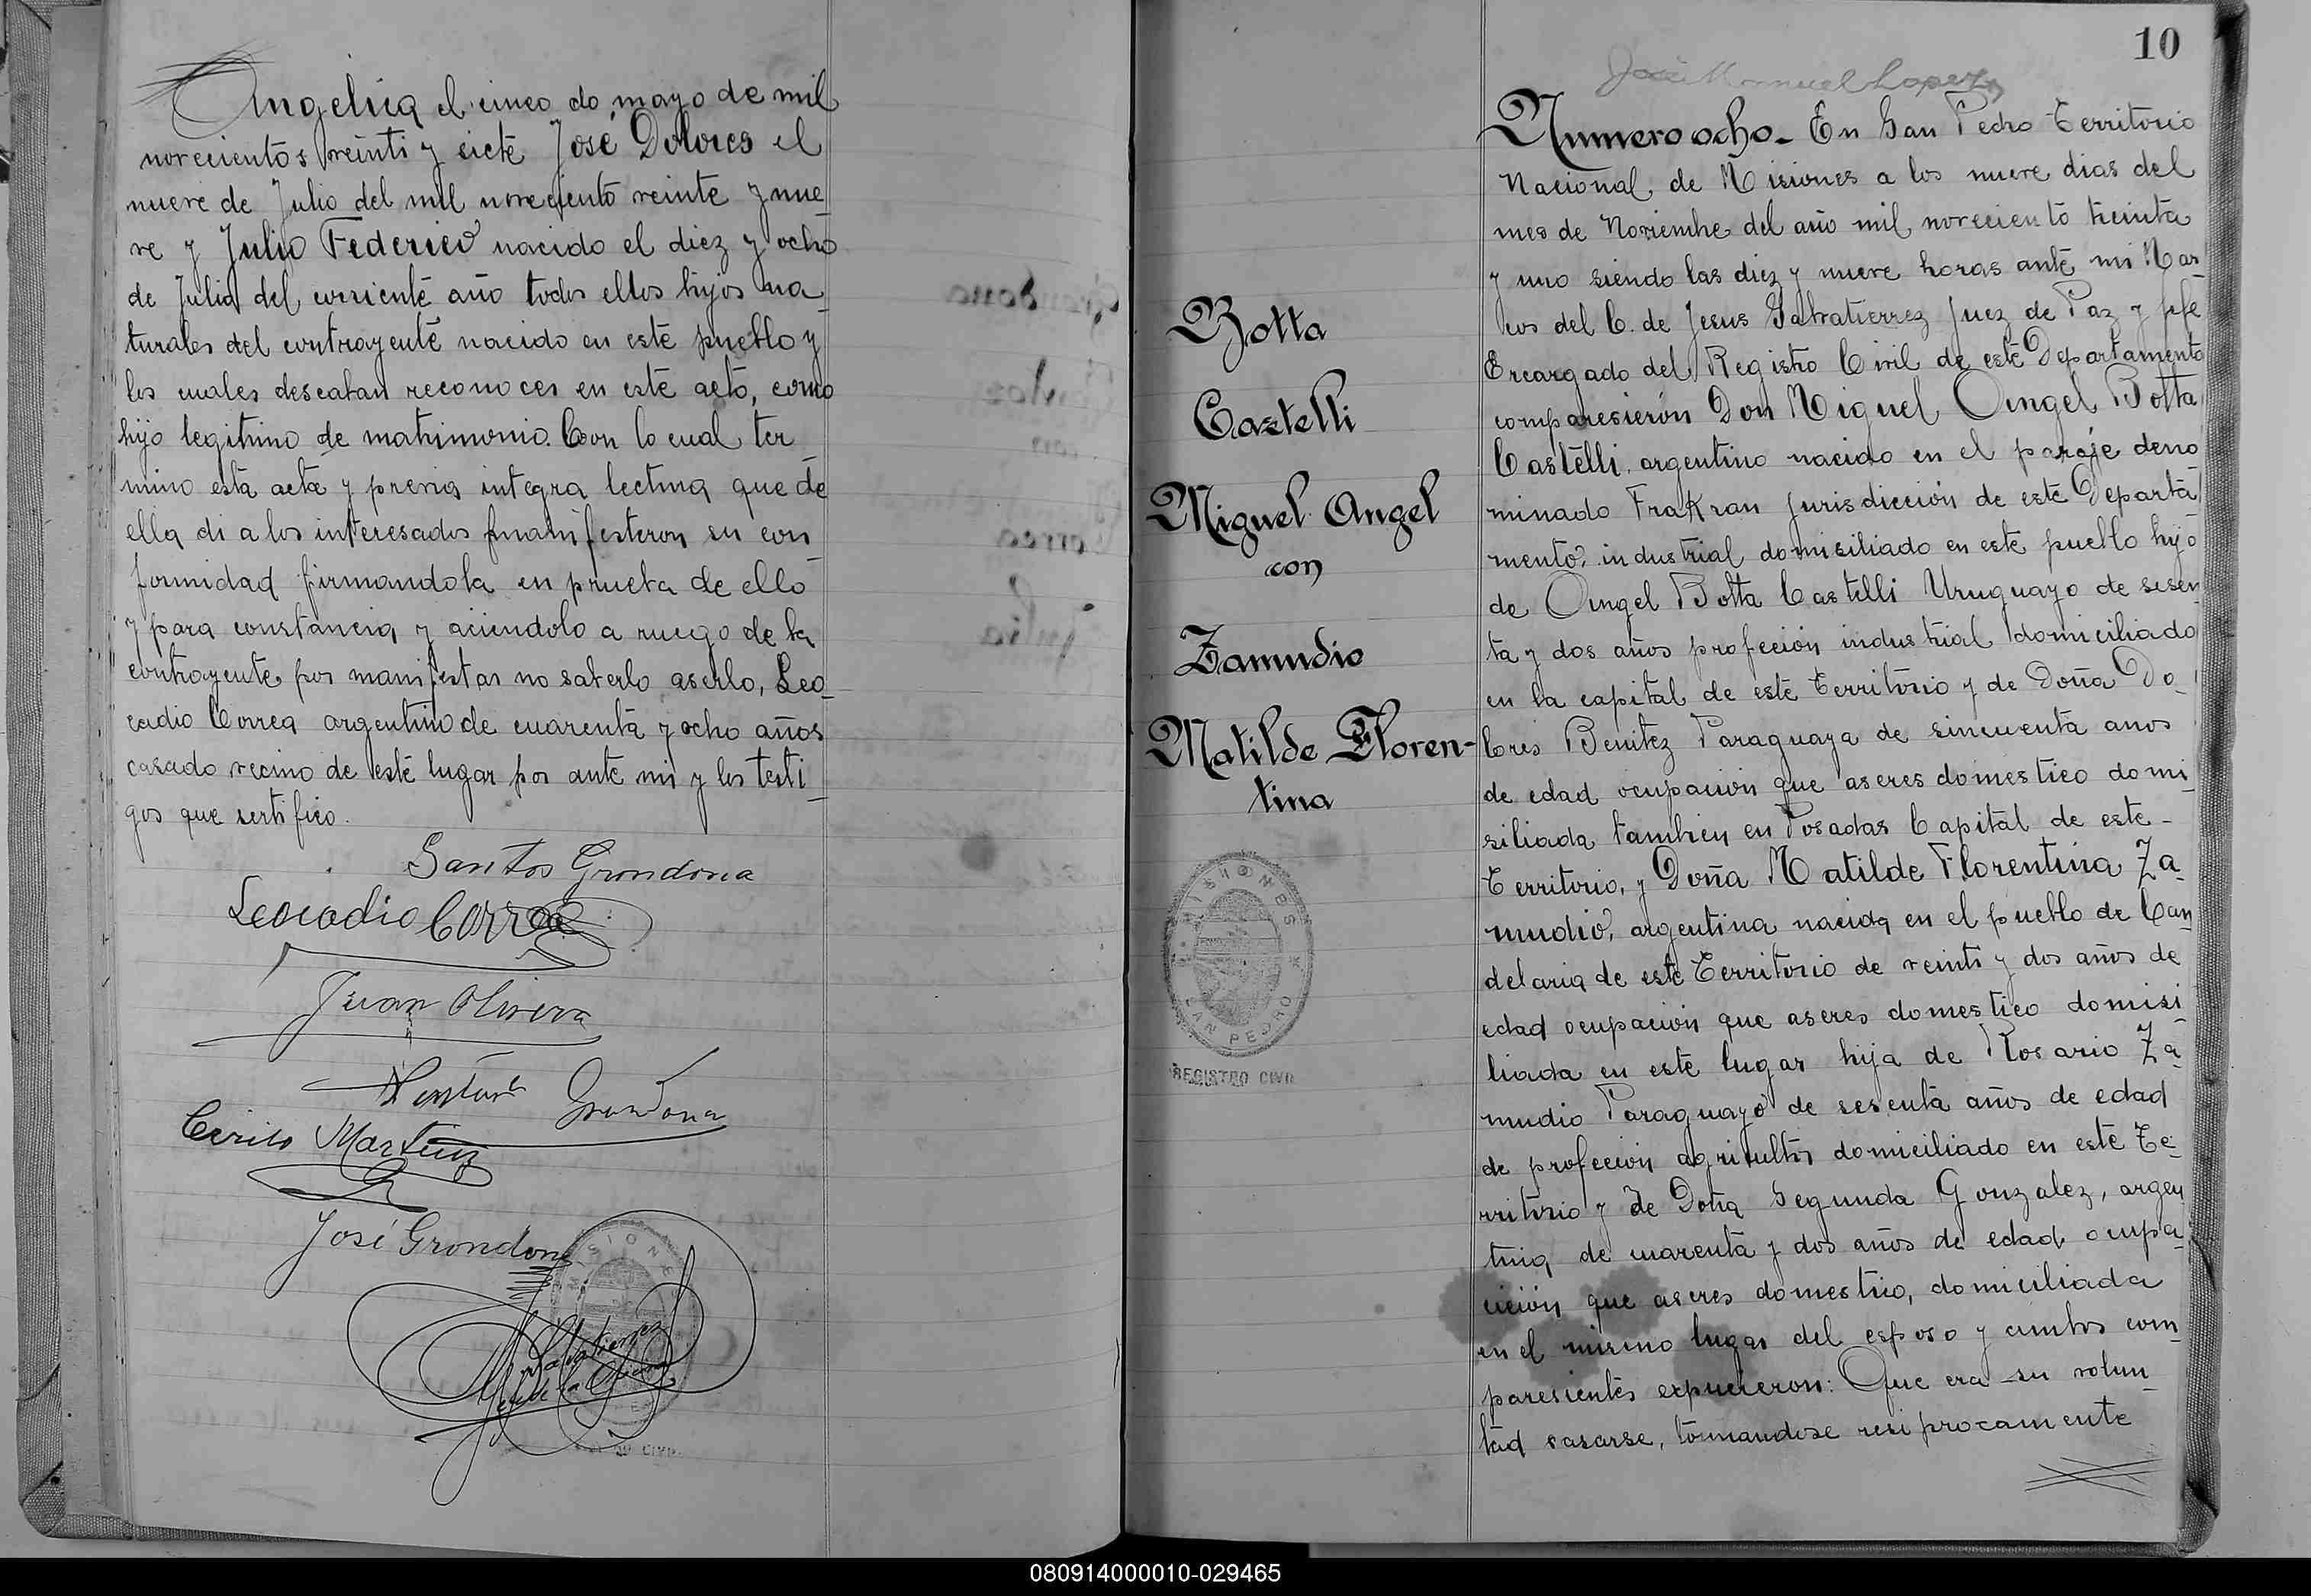 Angelica el cinco do mayo de mil
novecientos veinti y siete José Dolores el
nueve de Julio del mil noveciento veinte y nue-
ve y Julio Federico nacido el diez y ocho
de Julio del corriente año todos ellos hijos na-
turales del contrayente nacido en este pueblo y
los cuales deseaban reconoces en este acto, como
hijo legitimo de matrimonio. Con lo cual ter-
mino esta acta y previa integra lectura que de
ella di a los interesados manifesteron su con-
formidad firmandola en prueba de ello
y para constancia y aciendolo a ruego de la
contrayente por manifestar no saberlo aserlo, Leo-
cadio Correa argentino de cuarenta y ocho años
casado vecino de este lugar por ante mi y los testi-
gos que sertifico.
Santos Grondona
Leocadio Correa
Juan Olivera
Grondona
Cirilo Martinez
José Grondona
MISIONES
10
José Manuel Lopez
Numero ocho- En San Pedro Territorio
Nacional de Misiones a los nueve dias del
mes de Noviembre del año mil noveciento treinta
y uno siendo las diez y nueve horas ante mi Mar-
cos del C. de Jesus Salvatierrez Juez de Paz y jefe
Encargado del Registro Civil de este Departamento
comparesieron Don Miguel Angel Botta
Castelli, argentino nacido en el paraje deno-
minado Frakran Jurisdicción de este Departa-
mento, industrial domisiliado en este pueblo hijo
de Angel Botta Castelli Uruguayo de sesen-
ta y dos años profeción industrial domiciliado
en la capital de este Territorio y de Doña Do-
lores Benitez Paraguaya de sincuenta anos
de edad ocupacion que aseres domestico domi-
siliada tambien en Posadas Capital de este-
Territorio, y Doña Matilde Florentina Za-
mudio, argentina nacida en el pueblo de Can-
delaria de este Territorio de veinti y dos años de
edad ocupacion que aseres domestico domisi-
liada en este lugar hija de Rosario Za-
mudio Paraguayo de sesenta años de edad
de profecion agricultor domiciliado en este Te-
rritorio y de Doña Segunda Gonzalez, argen-
tina de cuarenta y dos años de edad ocupa-
cición que aseres domestico, domiciliada
en el mismo lugar del esposo y ambos com-
paresientes expucieron: Que era su volun-
tad casarse, tomandose resiprocamente
Botta
Castelli
Miguel Angel
con
Zamudio
Matilde Floren-
tina
MISIONES
SAN PEDRO
REGISTRO CIVIL
080914000010-029465